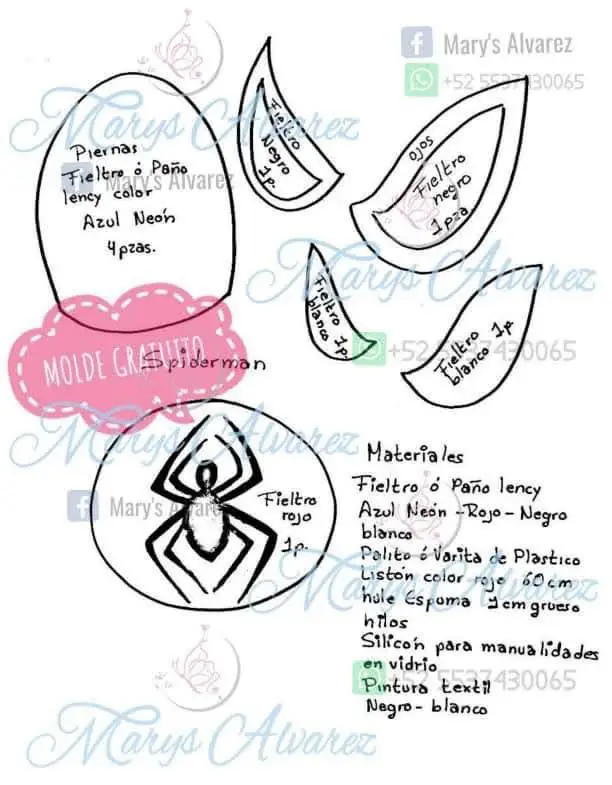 Mary's Alvarez
+52 5537430065
Marys Alvarez
Piernas
Fieltro ó Paño
lency color
Azul Neón
4 pzas.
Mary's Alvarez
Fieltro
Negro
1p.
ojos
Fieltro
negro
1 pza
Marys Alvarez
Fieltro 1p.
blanco
Fieltro 1p
blanco
+52 5537430065
MOLDE GRATUITO
Spiderman
Marys Alvarez
Fieltro
rojo
1p.
Mary's Alvarez
Materiales
Fieltro ó Paño lency
Azul Neón - Rojo - Negro
blanco
Palito ó Varita de Plastico
Listón color rojo 60 cm
hule Espuma 1 cm grueso
hilos
Silicón para manualidades
en vidrio
Pintura textil
Negro - blanco
Marys Alvarez
+52 5537430065
Marys Alvarez